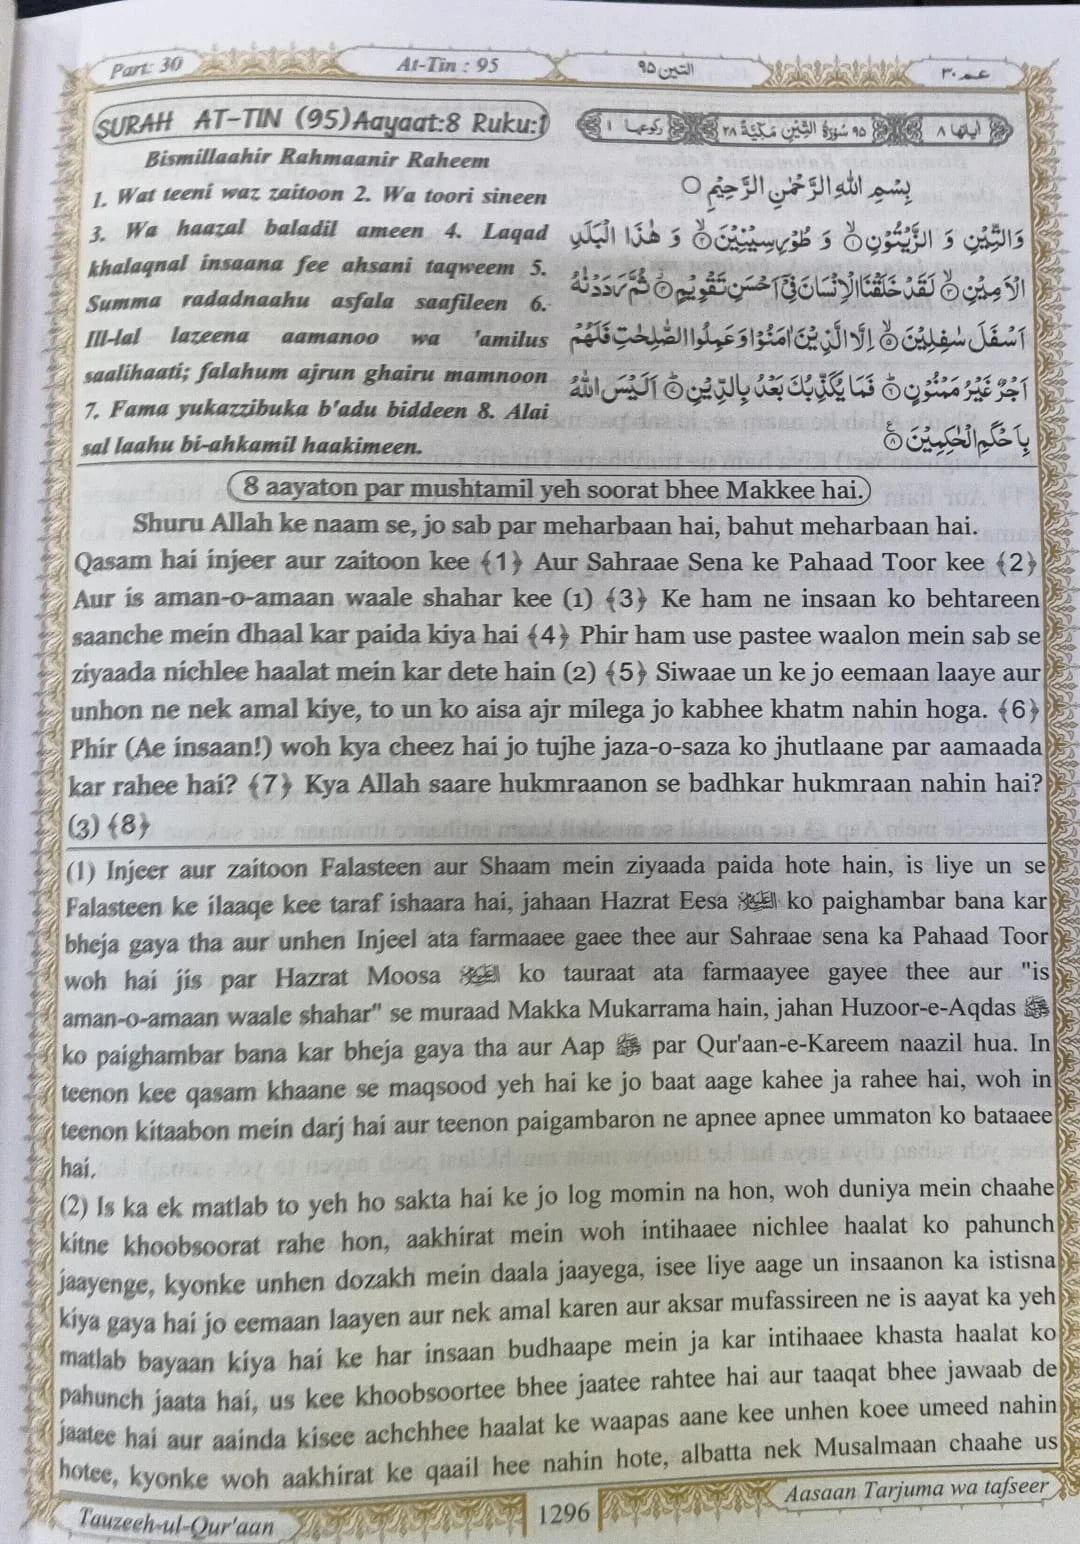 Part: 30
At-Tin : 95
التين ٩٥
عم ٣٠
SURAH AT-TIN (95) Aayaat:8 Ruku:1
Bismillaahir Rahmaanir Raheem
1. Wat teeni waz zaitoon 2. Wa toori sineen
3. Wa haazal baladil ameen 4. Laqad
khalaqnal insaana fee ahsani taqweem 5.
Summa radadnaahu asfala saafileen 6.
Ill-lal lazeena aamanoo wa 'amilus
saalihaati; falahum ajrun ghairu mamnoon
7. Fama yukazzibuka b'adu biddeen 8. Alai
sal laahu bi-ahkamil haakimeen.
اٰیاتها ٨ ٩٥ سُوْرَةُ التِّيْنِ مَكِّيَّةٌ ٢٨ رکوعها ١
بِسْمِ اللّٰهِ الرَّحْمٰنِ الرَّحِيْمِ
وَالتِّيْنِ وَ الزَّيْتُوْنِ ۙ‏﴿۱﴾ وَ طُوْرِ سِيْنِيْنَ ۙ‏﴿۲﴾ وَ هٰذَا الْبَلَدِ
الْاَمِيْنِ ۙ‏﴿۳﴾ لَقَدْ خَلَقْنَا الْاِنْسَانَ فِيْۤ اَحْسَنِ تَقْوِيْمٍ ‏﴿۴﴾ ثُمَّ رَدَدْنٰهُ
اَسْفَلَ سٰفِلِيْنَ ۙ‏﴿۵﴾ اِلَّا الَّذِيْنَ اٰمَنُوْا وَ عَمِلُوا الصّٰلِحٰتِ فَلَهُمْ
اَجْرٌ غَيْرُ مَمْنُوْنٍ ؕ‏﴿۶﴾ فَمَا يُكَذِّبُكَ بَعْدُ بِالدِّيْنِ ؕ‏﴿۷﴾ اَلَيْسَ اللّٰهُ
بِاَحْكَمِ الْحٰكِمِيْنَ ‏﴿۸﴾
8 aayaton par mushtamil yeh soorat bhee Makkee hai.
Shuru Allah ke naam se, jo sab par meharbaan hai, bahut meharbaan hai.
Qasam hai injeer aur zaitoon kee {1} Aur Sahraae Sena ke Pahaad Toor kee {2}
Aur is aman-o-amaan waale shahar kee (1) {3} Ke ham ne insaan ko behtareen
saanche mein dhaal kar paida kiya hai {4} Phir ham use pastee waalon mein sab se
ziyaada nichlee haalat mein kar dete hain (2) {5} Siwaae un ke jo eemaan laaye aur
unhon ne nek amal kiye, to un ko aisa ajr milega jo kabhee khatm nahin hoga. {6}
Phir (Ae insaan!) woh kya cheez hai jo tujhe jaza-o-saza ko jhutlaane par aamaada
kar rahee hai? {7} Kya Allah saare hukmraanon se badhkar hukmraan nahin hai?
(3) {8}
(1) Injeer aur zaitoon Falasteen aur Shaam mein ziyaada paida hote hain, is liye un se
Falasteen ke ilaaqe kee taraf ishaara hai, jahaan Hazrat Eesa ko paighambar bana kar
bheja gaya tha aur unhen Injeel ata farmaaee gaee thee aur Sahraae sena ka Pahaad Toor
woh hai jis par Hazrat Moosa ko tauraat ata farmaayee gayee thee aur "is
aman-o-amaan waale shahar" se muraad Makka Mukarrama hain, jahan Huzoor-e-Aqdas ﷺ
ko paighambar bana kar bheja gaya tha aur Aap ﷺ par Qur'aan-e-Kareem naazil hua. In
teenon kee qasam khaane se maqsood yeh hai ke jo baat aage kahee ja rahee hai, woh in
teenon kitaabon mein darj hai aur teenon paigambaron ne apnee apnee ummaton ko bataaee
hai.
(2) Is ka ek matlab to yeh ho sakta hai ke jo log momin na hon, woh duniya mein chaahe
kitne khoobsoorat rahe hon, aakhirat mein woh intihaaee nichlee haalat ko pahunch
jaayenge, kyonke unhen dozakh mein daala jaayega, isee liye aage un insaanon ka istisna
kiya gaya hai jo eemaan laayen aur nek amal karen aur aksar mufassireen ne is aayat ka yeh
matlab bayaan kiya hai ke har insaan budhaape mein ja kar intihaaee khasta haalat ko
pahunch jaata hai, us kee khoobsoortee bhee jaatee rahtee hai aur taaqat bhee jawaab de
jaatee hai aur aainda kisee achchhee haalat ke waapas aane kee unhen koee umeed nahin
hotee, kyonke woh aakhirat ke qaail hee nahin hote, albatta nek Musalmaan chaahe us
Tauzeeh-ul-Qur'aan
1296
Aasaan Tarjuma wa tafseer